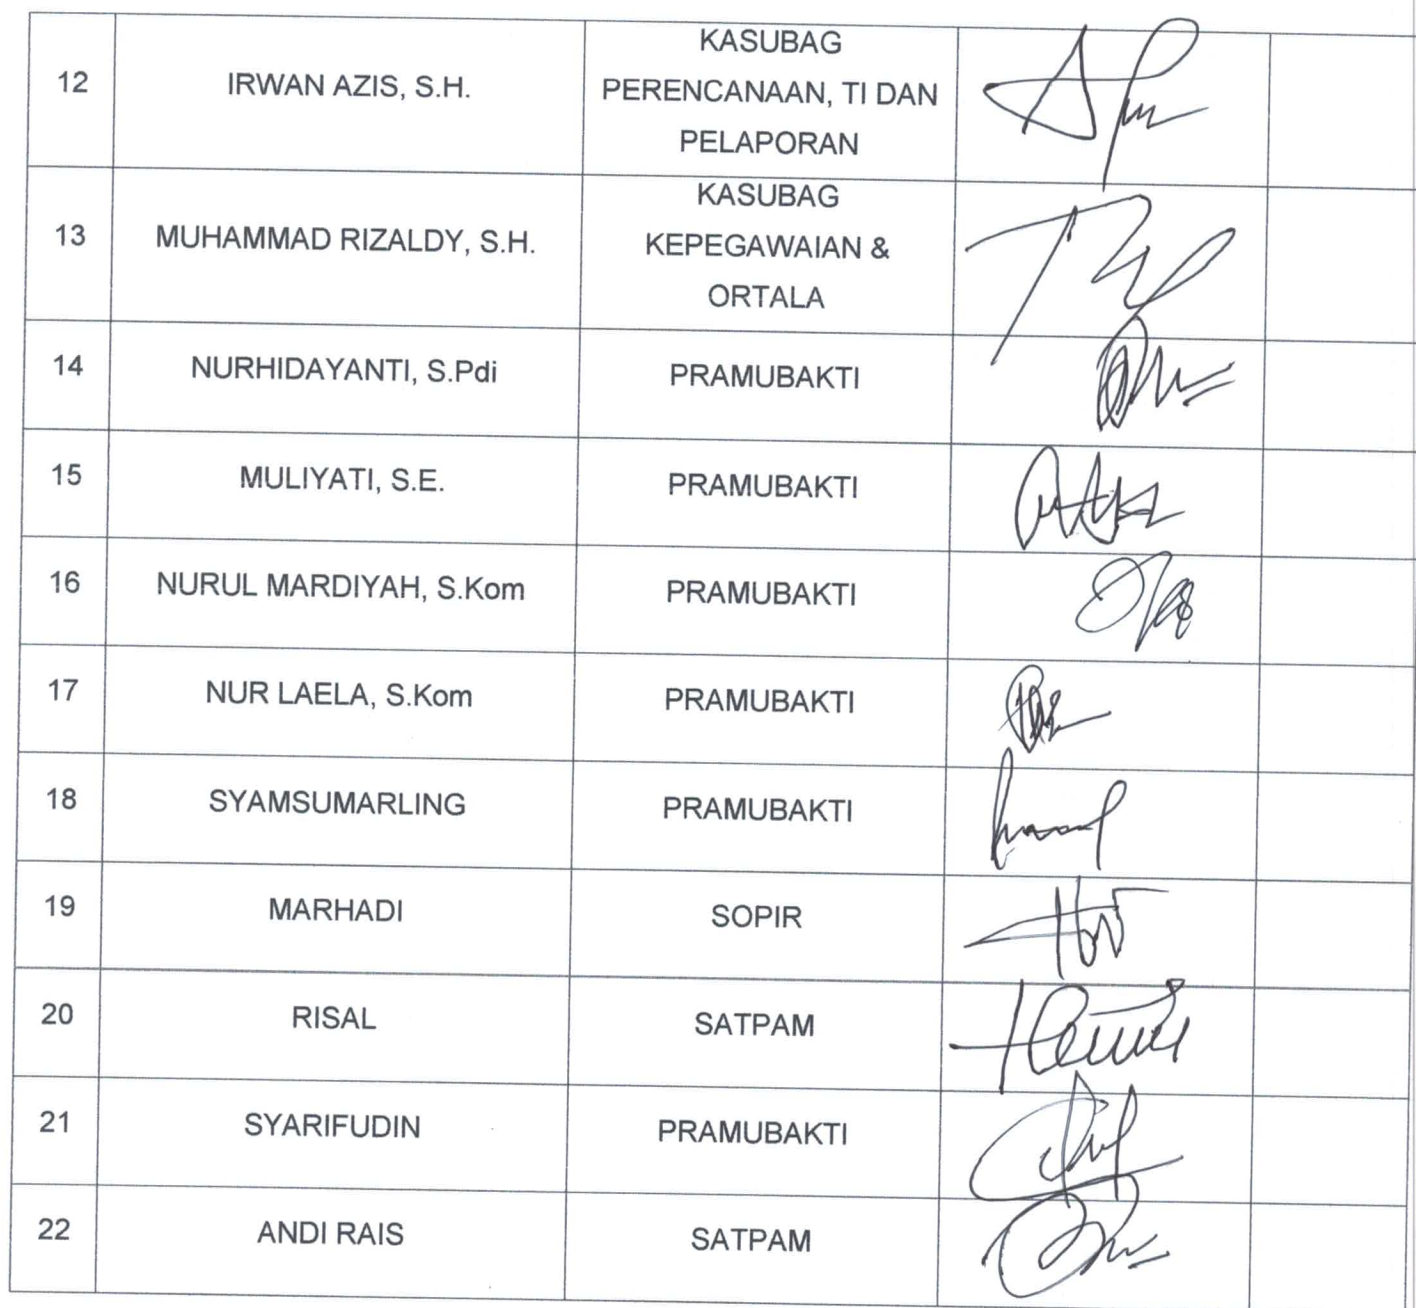 12 IRWAN AZIS, S.H. KASUBAG
PERENCANAAN, TI DAN
PELAPORAN
13 MUHAMMAD RIZALDY, S.H. KASUBAG
KEPEGAWAIAN &
ORTALA
14 NURHIDAYANTI, S.Pdi PRAMUBAKTI
15 MULIYATI, S.E. PRAMUBAKTI
16 NURUL MARDIYAH, S.Kom PRAMUBAKTI
17 NUR LAELA, S.Kom PRAMUBAKTI
18 SYAMSUMARLING PRAMUBAKTI
19 MARHADI SOPIR
20 RISAL SATPAM
21 SYARIFUDIN PRAMUBAKTI
22 ANDI RAIS SATPAM